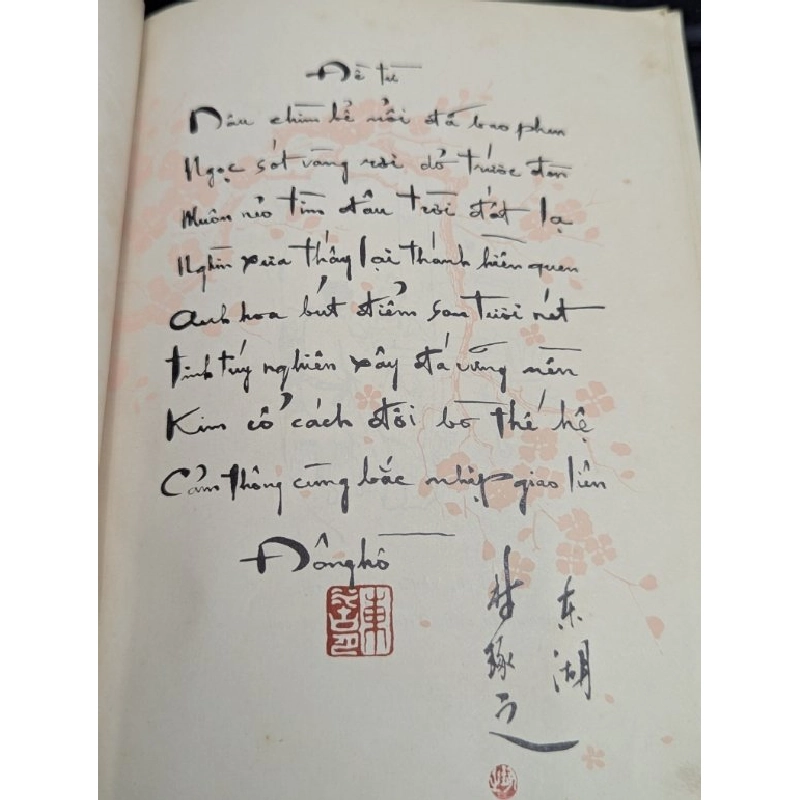 Đề từ
Dâu chìm bể nổi đã bao phen
Ngọc sót vàng rơi dở trước đèn
Muôn nẻo tìm đâu trời đất lạ
Nghìn xưa thấy lại thánh hiền quen
Anh hoa bút điểm son tươi nét
Tinh túy nghiên xây đá vững nền
Kim cổ cách đôi bờ thế hệ
Cảm thông cùng bắc nhịp giao liên
Đônghồ
東
东湖
林琢之